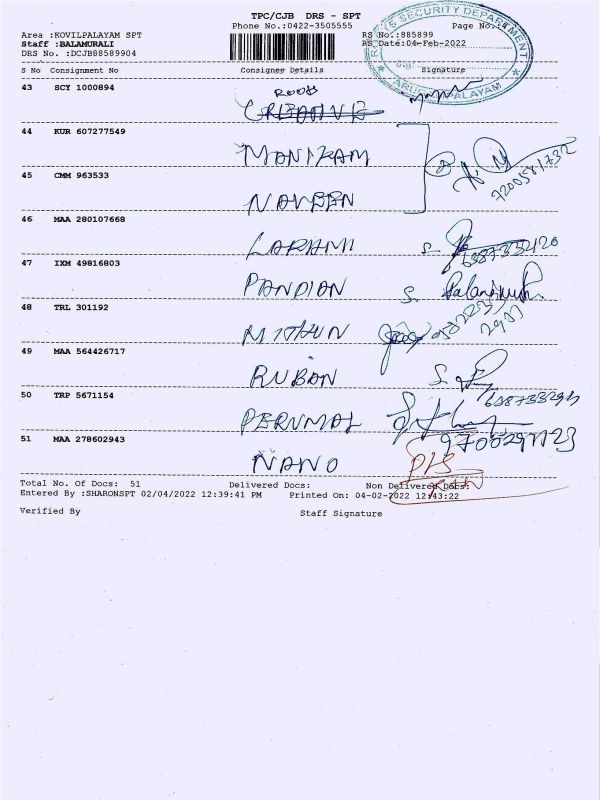 TPC/CJB DRS - SPT
Phone No.:0422-3505555 Page No.:4
Area :KOVILPALAYAM SPT RS No.:885899
Staff :BALAMURALI RS Date:04-Feb-2022
DRS No. :DCJB88589904
SECURITY DEPARTMENT
S No Consignment No Consignee Details Signature
43 SCY 1000894
44 KUR 607277549
MANIKAM
7200581732
45 CMM 963533
NAVEEN
46 MAA 280107668
LAKSHMI S.
47 IXM 49816803
PANDIAN S.
48 TRL 301192
MITHUN
49 MAA 564426717
RUBAN S.
50 TRP 5671154
PERUMAL
51 MAA 278602943
NANO
Total No. Of Docs: 51 Delivered Docs: Non Delivered Docs:
Entered By :SHARONSPT 02/04/2022 12:39:41 PM Printed On: 04-02-2022 12:43:22
Verified By Staff Signature